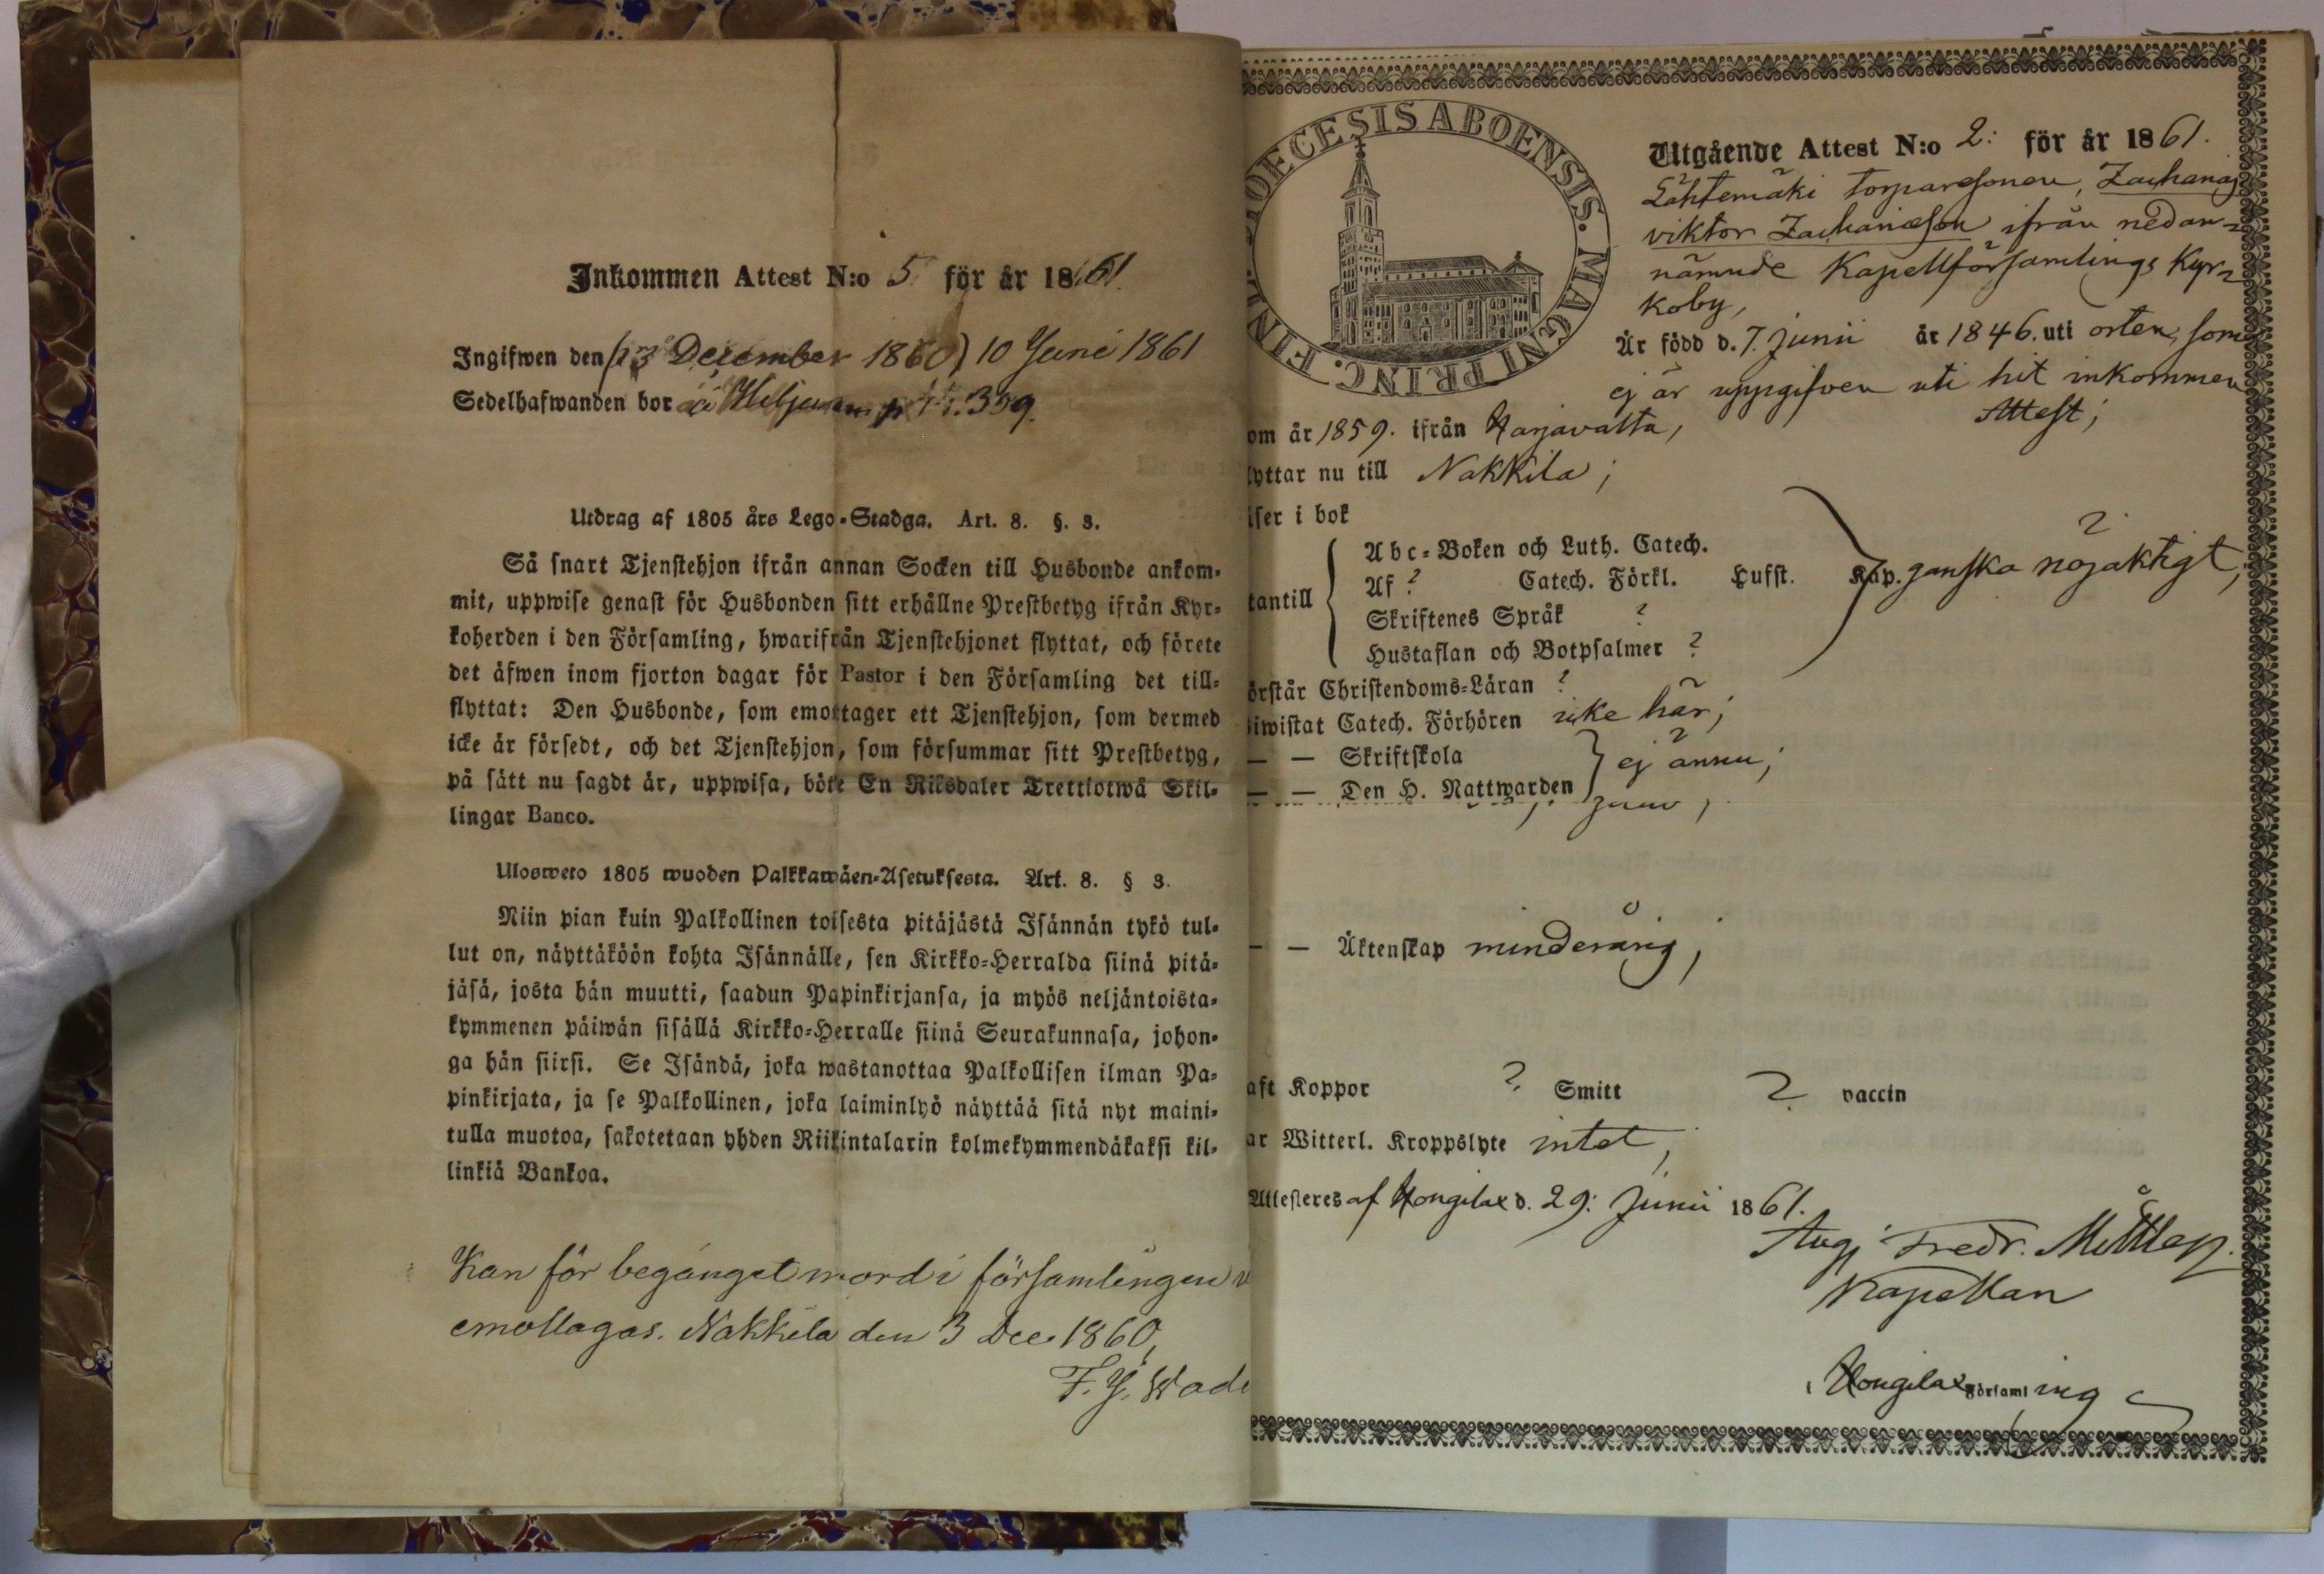 Inkommen Attest N:o 5 för år 1861.
Ingifwen den (3 December 1860) 10 Juni 1861
Sedelhafwanden bor å p. 359.
Utdrag af 1805 års Lego-Stadga. Art. 8. §. 3.
Så snart Tjenstehjon ifrån annan Socken till Husbonde ankom-
mit, uppwise genast för Husbonden sitt erhållne Prestbetyg ifrån Kyr-
koherden i den Församling, hwarifrån Tjenstehjonet flyttat, och förete
det äfwen inom fjorton dagar för Pastor i den Församling det till-
flyttat: Den Husbonde, som emottager ett Tjenstehjon, som dermed
icke är försedt, och det Tjenstehjon, som försummar sitt Prestbetyg,
på sätt nu sagdt är, uppwisa, böte En Riksdaler Trettiotwå Skil-
lingar Banco.
Ulosweto 1805 wuoden Palkkawäen-Asetuksesta. Art. 8. § 3.
Niin pian kuin Palkollinen toisesta pitäjästä Isännän tykö tul-
lut on, näyttäköön kohta Isännälle, sen Kirkko-Herralda siinä pitä-
jäsä, josta hän muutti, saadun Papinkirjansa, ja myös neljäntoista-
kymmenen päiwän sisällä Kirkko-Herralle siinä Seurakunnasa, johon-
ga hän siirsi. Se Isändä, joka wastanottaa Palkollisen ilman Pa-
pinkirjata, ja se Palkollinen, joka laiminlyö näyttää sitä nyt maini-
tulla muotoa, sakotetaan yhden Riikintalarin kolmekymmendäkaksi kil-
linkiä Bankoa.
Kan för begånget mord i församlingen
emottagas. Nakkila den 3 Dec. 1860,
F. J. Wade
DIOECESIS ABOENSIS. MAGNI PRINC. FINL.
Utgående Attest N:o 2: för år 1861.
Lähtemäki torparesonen, Zacharias
viktor Zachariæson ifrån nedan-
nämnde Kapellförsamlings Kyr-
koby,
Är född d. 7. Junii år 1846. uti orten, som
ej är uppgifven uti hit inkommen
Attest;
om år 1859. ifrån Harjavalta,
lyttar nu till Nakkila;
iser i bok
tantill
Abc-Boken och Luth. Catech.
Af ? Catech. Förkl. Hufst. Kap. ganska nöjaktigt;
Skriftenes Språk ?
Hustaflan och Botpsalmer ?
örstår Christendoms-Läran ?
iwistat Catech. Förhören icke här;
— — Skriftskola
— — Den H. Nattwarden ej ännu;
— — Äktenskap minderårig;
aft Koppor ? Smitt ? vaccin
ar Witterl. Kroppslyte intet;
Attesteres af Hongilax d. 29: Junii 1861.
Aug. Fredr.
Kapellan
i Hongilax Församling